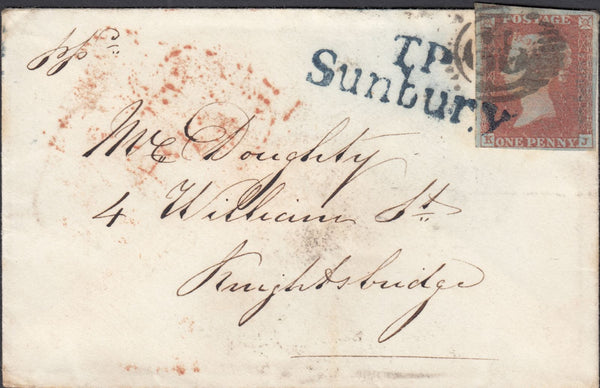 ppd
T.P
Sunbury
POSTAGE
ONE PENNY J
Mr Doughty
4 William St.
Knightsbridge